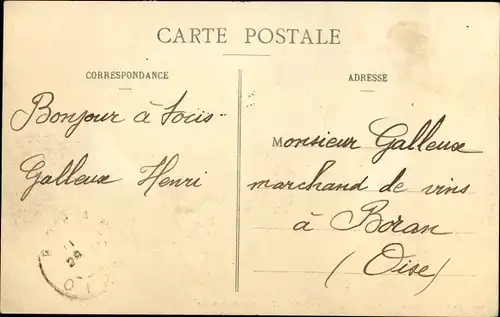 CARTE POSTALE
CORRESPONDANCE
Bonjour à tous
Galleux Henri
ADRESSE
Monsieur Galleux
marchand de vins
à Boran
(Oise)